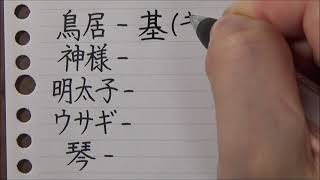 鳥居 - 基(
神様 -
明太子 -
ウサギ -
琴 -